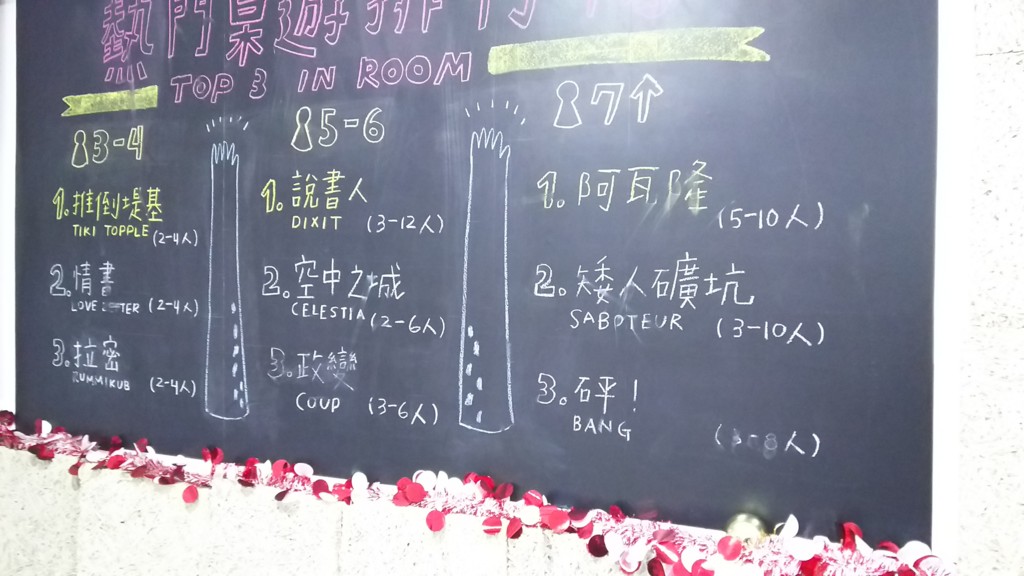 熱門桌遊排行榜
TOP 3 IN ROOM
3-4
1.推倒堤基
TIKI TOPPLE (2-4人)
2.情書
LOVE LETTER (2-4人)
3.拉密
RUMMIKUB (2-4人)
5-6
1.說書人
DIXIT (3-12人)
2.空中之城
CELESTIA (2-6人)
3.政變
COUP (3-6人)
7↑
1.阿瓦隆
(5-10人)
2.矮人礦坑
SABOTEUR (3-10人)
3.砰!
BANG